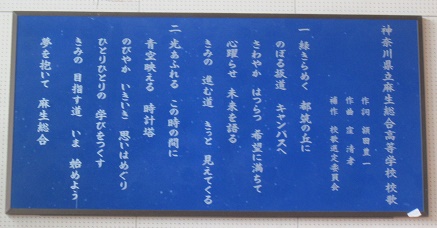 神奈川県立麻生総合高等学校 校歌
作詞 額田豊一
作曲 窪 清孝
補作 校歌選定委員会
一 緑きらめく 都筑の丘に
のぼる坂道 キャンパスへ
さわやか はつらつ 希望に満ちて
心躍らせ 未来を語る
きみの 進む道 きっと 見えてくる
二 光あふれる この時の間に
青空映える 時計塔
のびやか いきいき 思いはめぐり
ひとりひとりの 学びをつくす
きみの 目指す道 いま 始めよう
夢を抱いて 麻生総合